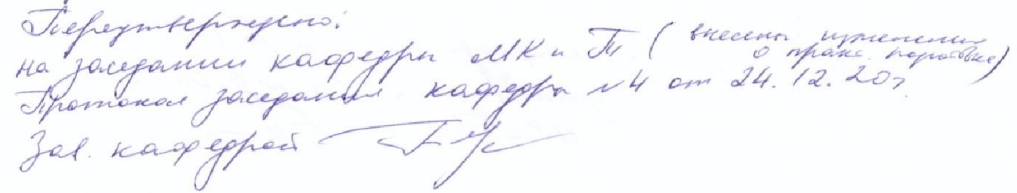 Переутверждено:
на заседании кафедры МК и Т (внесены изменения
о практ. подготовке)
Протокол заседания кафедры №4 от 24.12.20г.
Зав. кафедрой